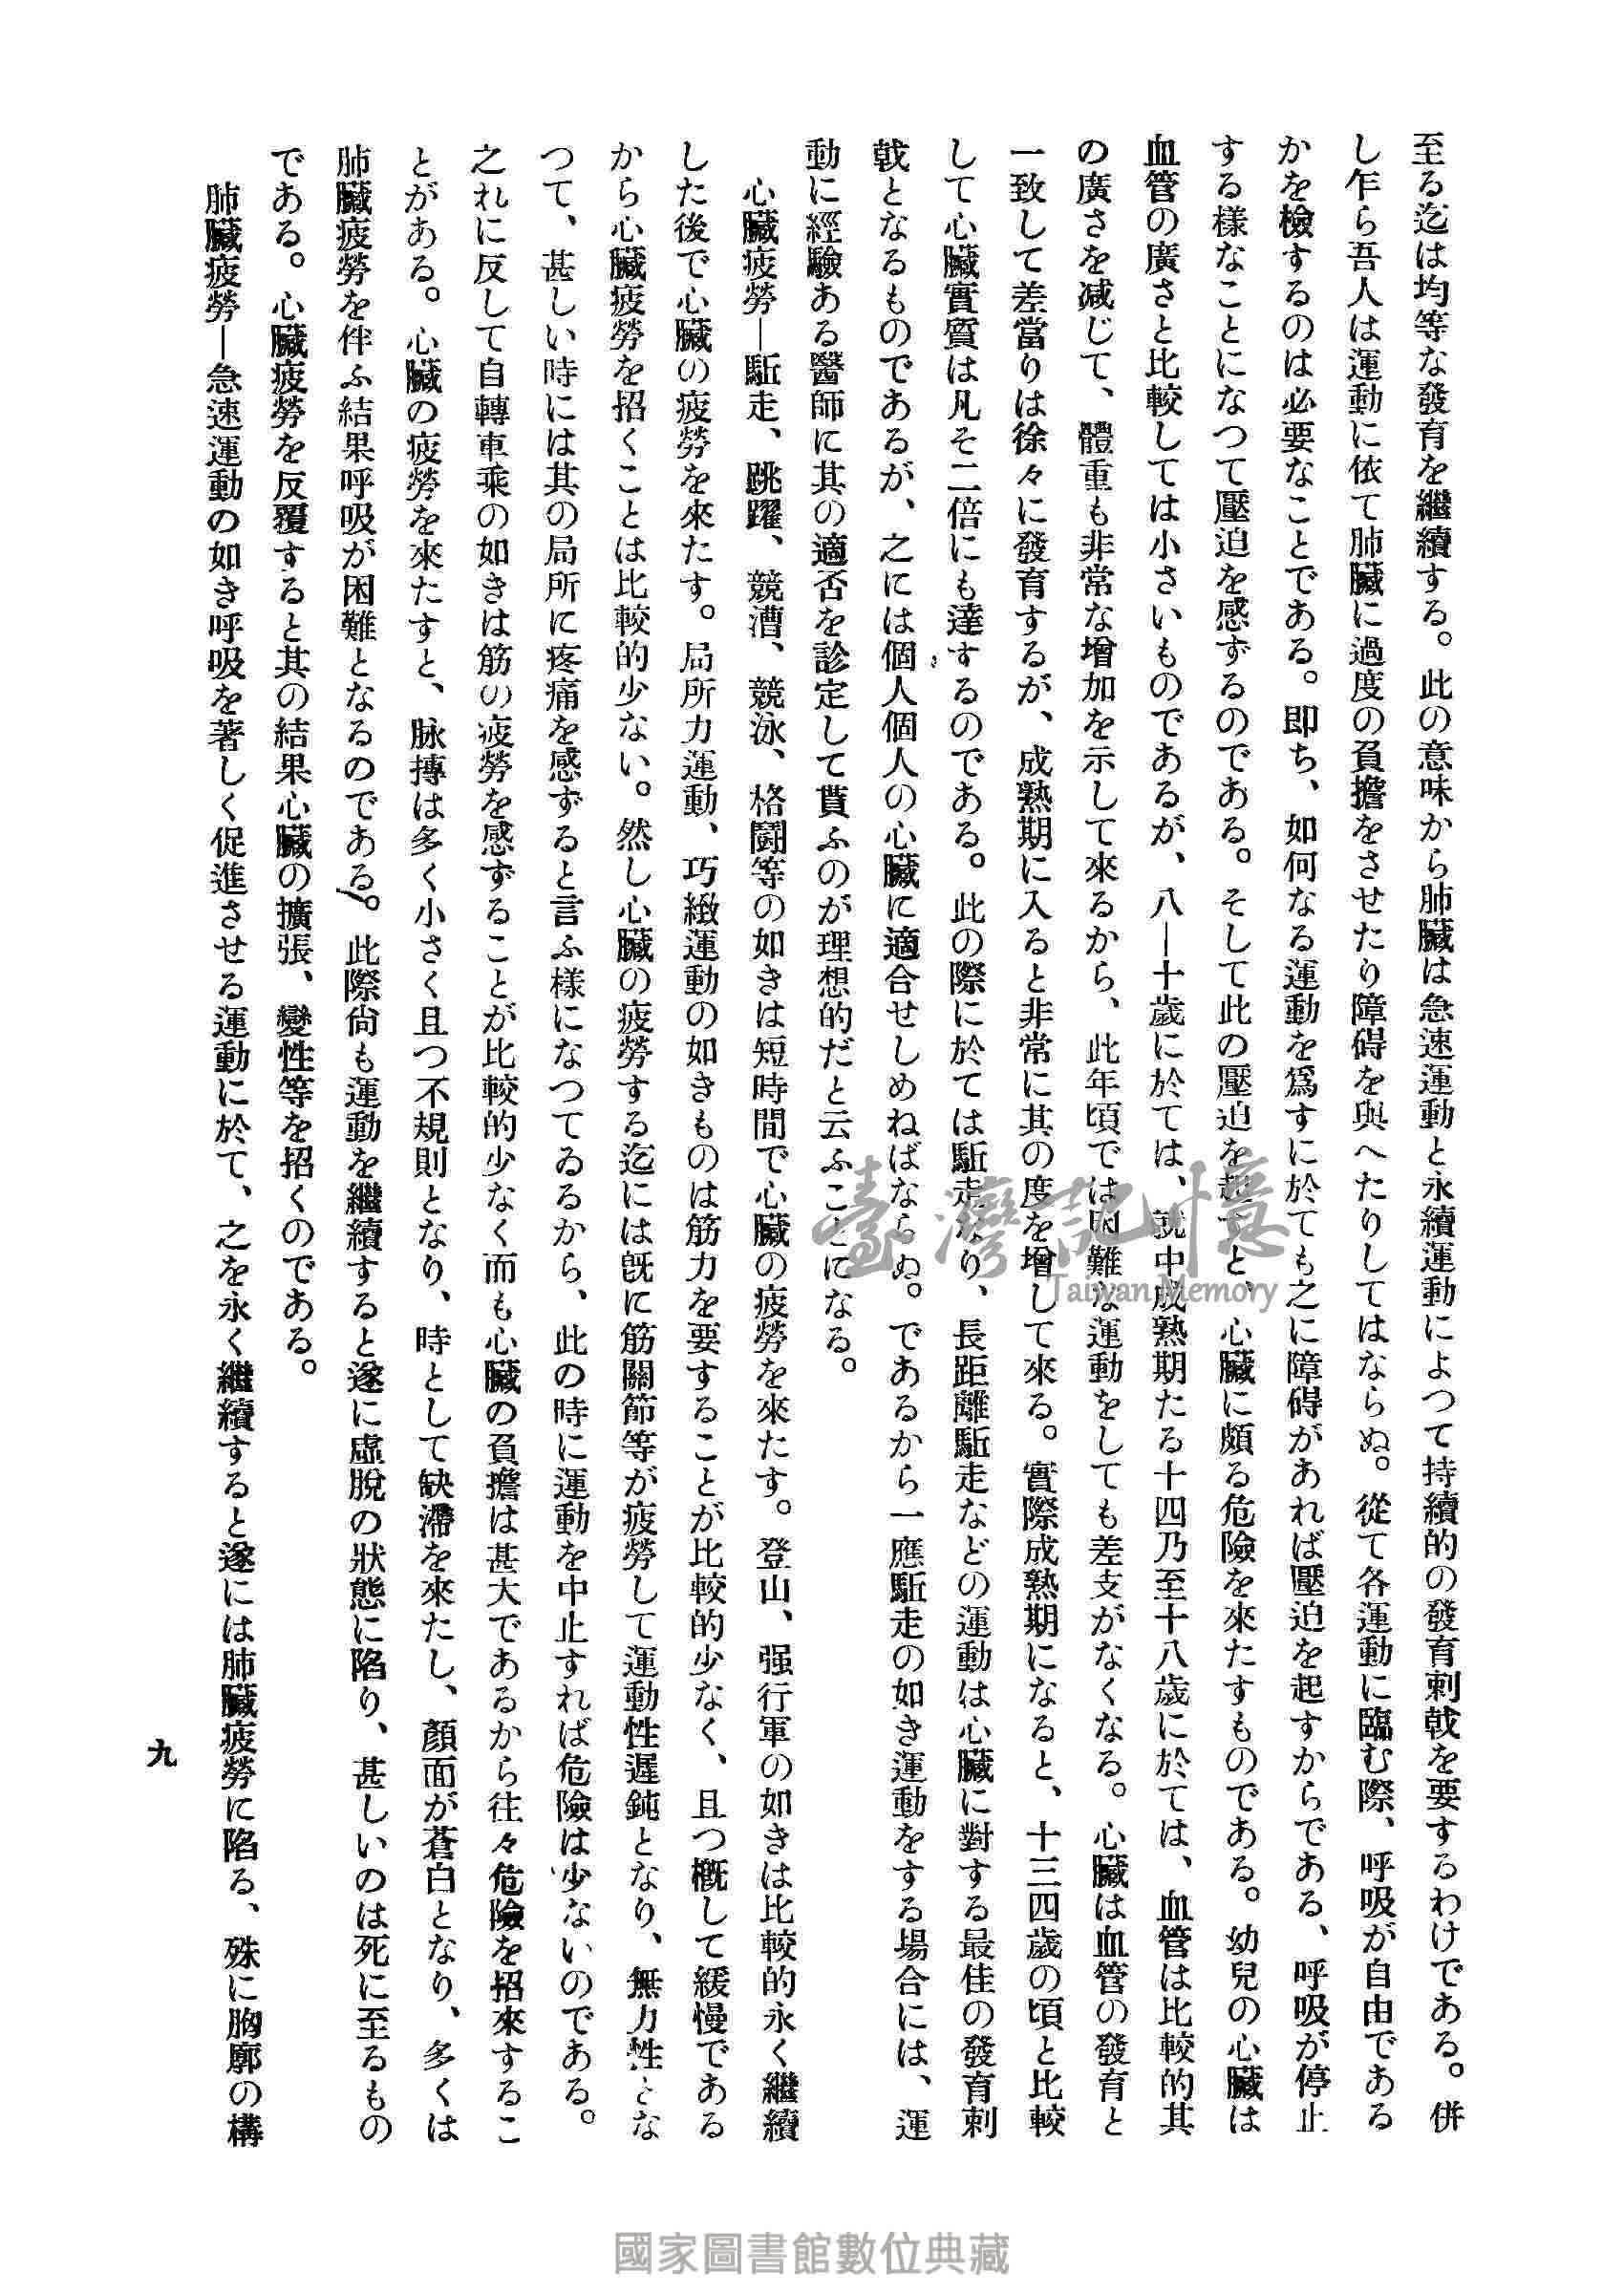 至る迄は均等な發育を繼續する。此の意味から肺臟は急速運動と永續運動によつて持續的の發育刺戟を要するわけである。併
し乍ら吾人は運動に依て肺臟に過度の負擔をさせたり障碍を與へたりしてはならぬ。從て各運動に臨む際、呼吸が自由である
かを檢するのは必要なことである。即ち、如何なる運動を爲すに於ても之に障碍があれば壓迫を起すからである、呼吸が停止
する樣なことになつて壓迫を感ずるのである。そして此の壓迫を起すと、心臟に頗る危險を來たすものである。幼兒の心臟は
血管の廣さと比較しては小さいものであるが、八—十歲に於ては、就中成熟期たる十四乃至十八歲に於ては、血管は比較的其
の廣さを減じて、體重も非常な增加を示して來るから、此年頃では困難な運動をしても差支がなくなる。心臟は血管の發育と
一致して差當りは徐々に發育するが、成熟期に入ると非常に其の度を增して來る。實際成熟期になると、十三四歲の頃と比較
して心臟實質は凡そ二倍にも達するのである。此の際に於ては駈走なり、長距離駈走などの運動は心臟に對する最佳の發育刺
戟となるものであるが、之には個人個人の心臟に適合せしめねばならぬ。であるから一應駈走の如き運動をする場合には、運
動に經驗ある醫師に其の適否を診定して貰ふのが理想的だと云ふことになる。
心臟疲勞—駈走、跳躍、競漕、競泳、格鬪等の如きは短時間で心臟の疲勞を來たす。登山、强行軍の如きは比較的永く繼續
した後で心臟の疲勞を來たす。局所力運動、巧緻運動の如きものは筋力を要することが比較的少なく、且つ槪して緩慢である
から心臟疲勞を招くことは比較的少ない。然し心臟の疲勞する迄には旣に筋關節等が疲勞して運動性遲鈍となり、無力性とな
つて、甚しい時には其の局所に疼痛を感ずると言ふ樣になつてゐるから、此の時に運動を中止すれば危險は少ないのである。
之れに反して自轉車乘の如きは筋の疲勞を感ずることが比較的少なく而も心臟の負擔は甚大であるから往々危險を招來するこ
とがある。心臟の疲勞を來たすと、脉搏は多く小さく且つ不規則となり、時として缺滯を來たし、顏面が蒼白となり、多くは
肺臟疲勞を伴ふ結果呼吸が困難となるのである。此際尙も運動を繼續すると遂に虛脫の狀態に陷り、甚しいのは死に至るもの
である。心臟疲勞を反覆すると其の結果心臟の擴張、變性等を招くのである。
肺臟疲勞—急速運動の如き呼吸を著しく促進させる運動に於て、之を永く繼續すると遂には肺臟疲勞に陷る、殊に胸廓の構
九
臺灣記憶
Taiwan Memory
國家圖書館數位典藏